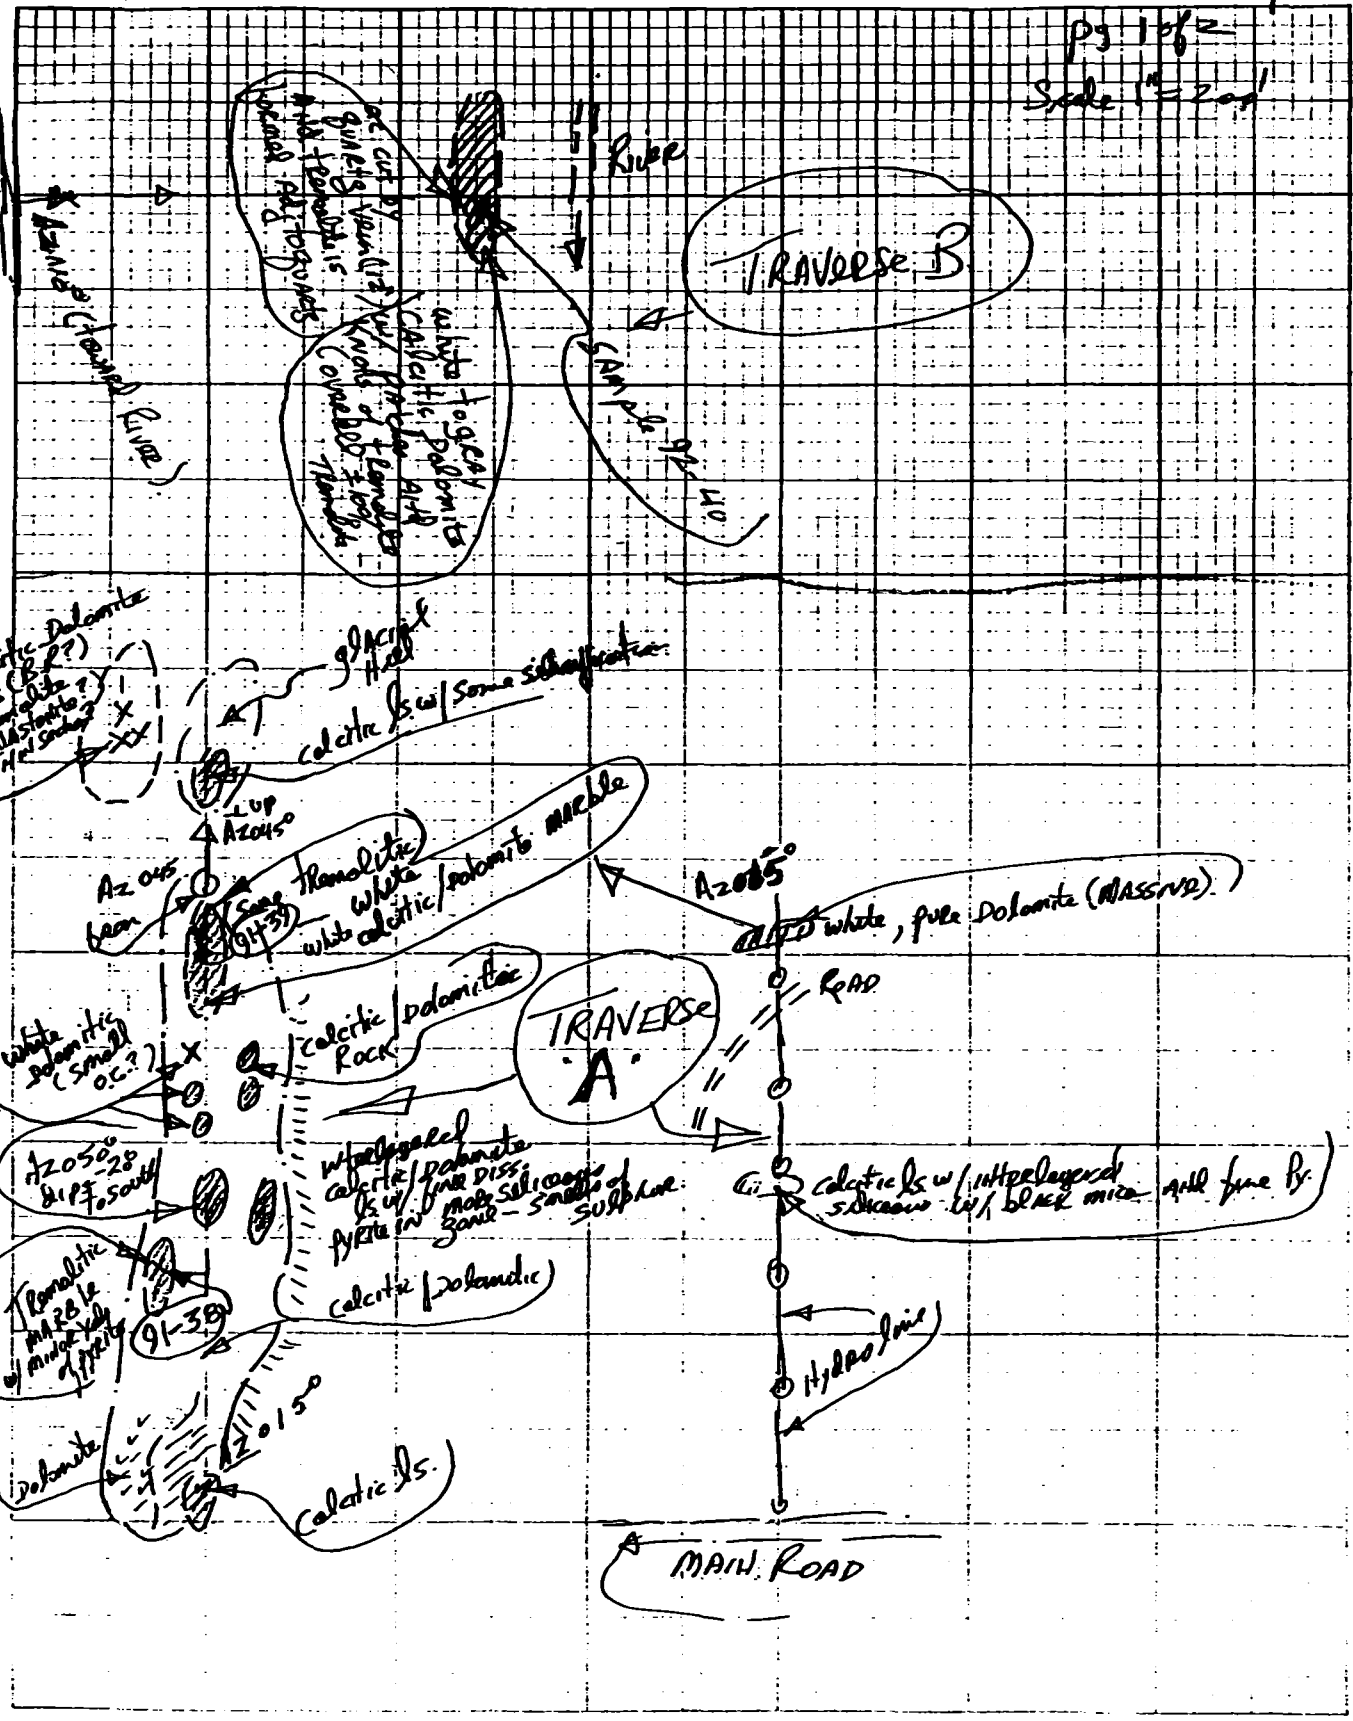 pg 1 of 2
Scale 1" = 200'
River
TRAVERSE B
oc cut by
quartz vein (12")
And tremolite is
formed Adj to quartz
white to gray
CAlcitic Dolomite
w/ patches And
Knots of tremolite
(overall ± 10%
Tremolite
SAMple 91-40
(toward River)
Dolomite
(B.R?)
glacial
Hill
calcitic ls. w/ some silicification
up
Az045°
Az 045
from
some Tremolitic
91-39
white
white calcitic/dolomite MARble
Az065°
white, pure Dolomite (MAssive)
RoAD
white
dolomitic
(small
o.c.?)
calcitic/Dolomitic
Rock
TRAVERSE
"A"
Az050°
dips -28
to south
interlayered
calcitic/Dolomite
ls w/ fine Diss.
pyrite in more siliceous
zone - smells of
sulphur
calcitic ls w/ interlayered
siliceous w/ black mica And fine Py.
Tremolitic
MARBle
w/ minor
of pyrite
91-38
calcitic/Dolomitic
Hydro line
Az015°
Dolomite
Calcitic ls.
MAIN ROAD